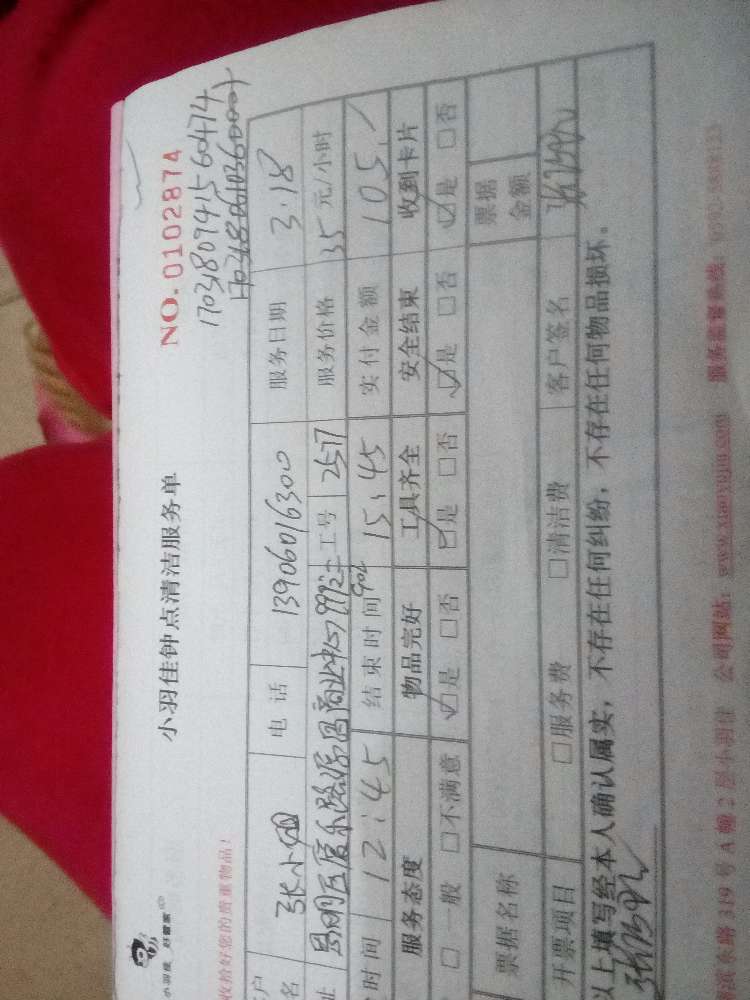 小羽佳 好管家
小羽佳钟点清洁服务单
NO.0102874
17031809415 60474
收拾好您的贵重物品!
名 张小姐 电话 13906016300 服务日期 3.18
址 工号 2577 服务价格 35 元/小时
时间 12:45 结束时间 15:45 实付金额 105
服务态度 物品完好 工具齐全 安全结束 收到卡片
□一般 □不满意 ☑是 □否 ☑是 □否 ☑是 □否 ☑是 □否
票据名称 票据金额
开票项目 □服务费 □清洁费 客户签名
以上填写经本人确认属实,不存在任何纠纷,不存在任何物品损坏。
滨东路319号A幢2层小羽佳 公司网站:www.xiaoyujia.com 服务监督热线: